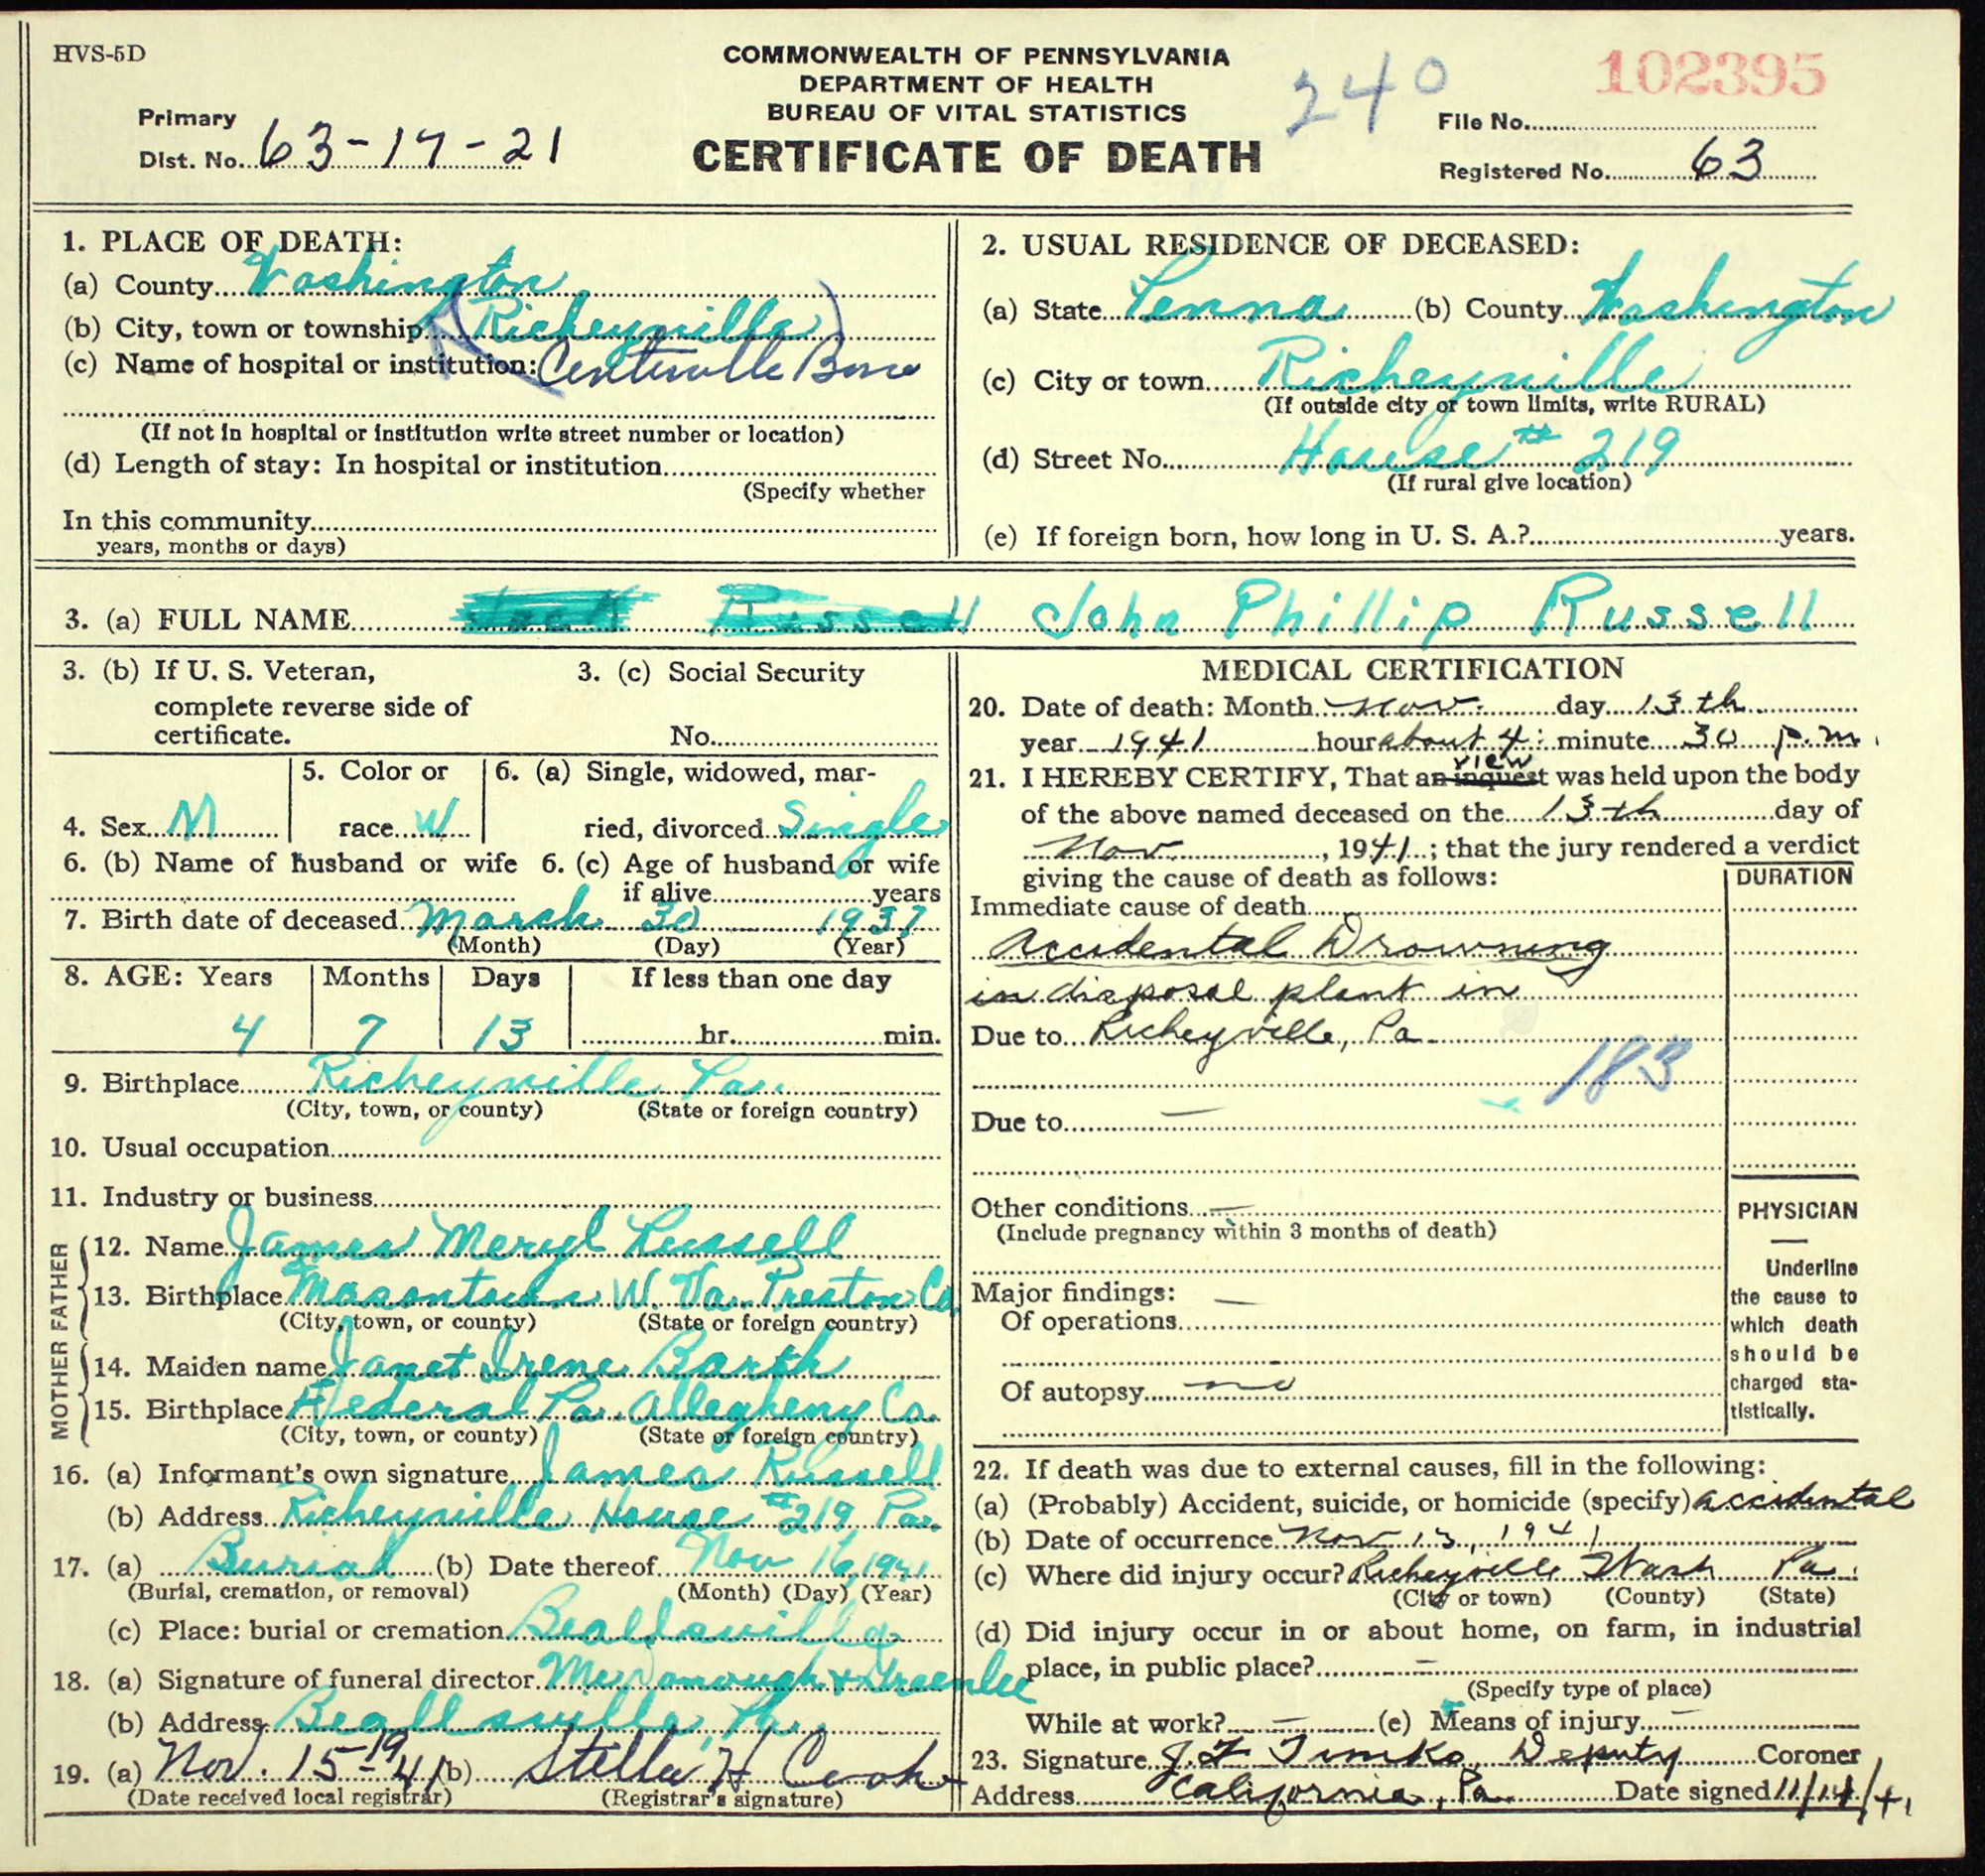 HVS-5D
COMMONWEALTH OF PENNSYLVANIA
DEPARTMENT OF HEALTH
BUREAU OF VITAL STATISTICS
CERTIFICATE OF DEATH
240
102395
Primary
Dist. No. 63-17-21
File No.
Registered No. 63
1. PLACE OF DEATH:
(a) County Washington
(b) City, town or township (Richeyville)
(c) Name of hospital or institution: Centerville Boro
(If not in hospital or institution write street number or location)
(d) Length of stay: In hospital or institution
(Specify whether
In this community
years, months or days)
2. USUAL RESIDENCE OF DECEASED:
(a) State Penna (b) County Washington
(c) City or town Richeyville
(If outside city or town limits, write RURAL)
(d) Street No. House # 219
(If rural give location)
(e) If foreign born, how long in U. S. A.? years.
3. (a) FULL NAME Russell John Phillip Russell
3. (b) If U. S. Veteran,
complete reverse side of
certificate.
3. (c) Social Security
No.
4. Sex M
5. Color or
race W
6. (a) Single, widowed, mar-
ried, divorced Single
6. (b) Name of husband or wife 6. (c) Age of husband or wife
if alive years
7. Birth date of deceased March 30 1937
(Month) (Day) (Year)
8. AGE: Years Months Days If less than one day
4 7 13 hr. min.
9. Birthplace Richeyville Pa.
(City, town, or county) (State or foreign country)
10. Usual occupation
11. Industry or business
FATHER
12. Name James Meryl Russell
13. Birthplace Masontown W. Va. Preston Co.
(City, town, or county) (State or foreign country)
MOTHER
14. Maiden name Janet Irene Barth
15. Birthplace Federal Pa. Allegheny Co.
(City, town, or county) (State or foreign country)
16. (a) Informant's own signature James Russell
(b) Address Richeyville House # 219 Pa.
17. (a) Burial (b) Date thereof Nov 16, 1941
(Burial, cremation, or removal) (Month) (Day) (Year)
(c) Place: burial or cremation Beallsville
18. (a) Signature of funeral director McDonough & Greenlee
(b) Address Beallsville, Pa.
19. (a) Nov. 15-1941 (b) Stella H Cook
(Date received local registrar) (Registrar's signature)
MEDICAL CERTIFICATION
20. Date of death: Month Nov. day 13th
year 1941 hour about 4: minute 30 p.m.
view
21. I HEREBY CERTIFY, That an inquest was held upon the body
of the above named deceased on the 13th day of
Nov , 1941; that the jury rendered a verdict
giving the cause of death as follows:
DURATION
Immediate cause of death
Accidental Drowning
in disposal plant in
Due to Richeyville, Pa.
183
Due to —
Other conditions —
(Include pregnancy within 3 months of death)
Major findings: —
Of operations
Of autopsy no
PHYSICIAN
—
Underline
the cause to
which death
should be
charged sta-
tistically.
22. If death was due to external causes, fill in the following:
(a) (Probably) Accident, suicide, or homicide (specify) accidental
(b) Date of occurrence Nov 13, 1941
(c) Where did injury occur? Richeyville Wash Pa.
(City or town) (County) (State)
(d) Did injury occur in or about home, on farm, in industrial
place, in public place? —
(Specify type of place)
While at work? — (e) Means of injury —
23. Signature J. F. Timko, Deputy Coroner
Address California, Pa. Date signed 11/14/41